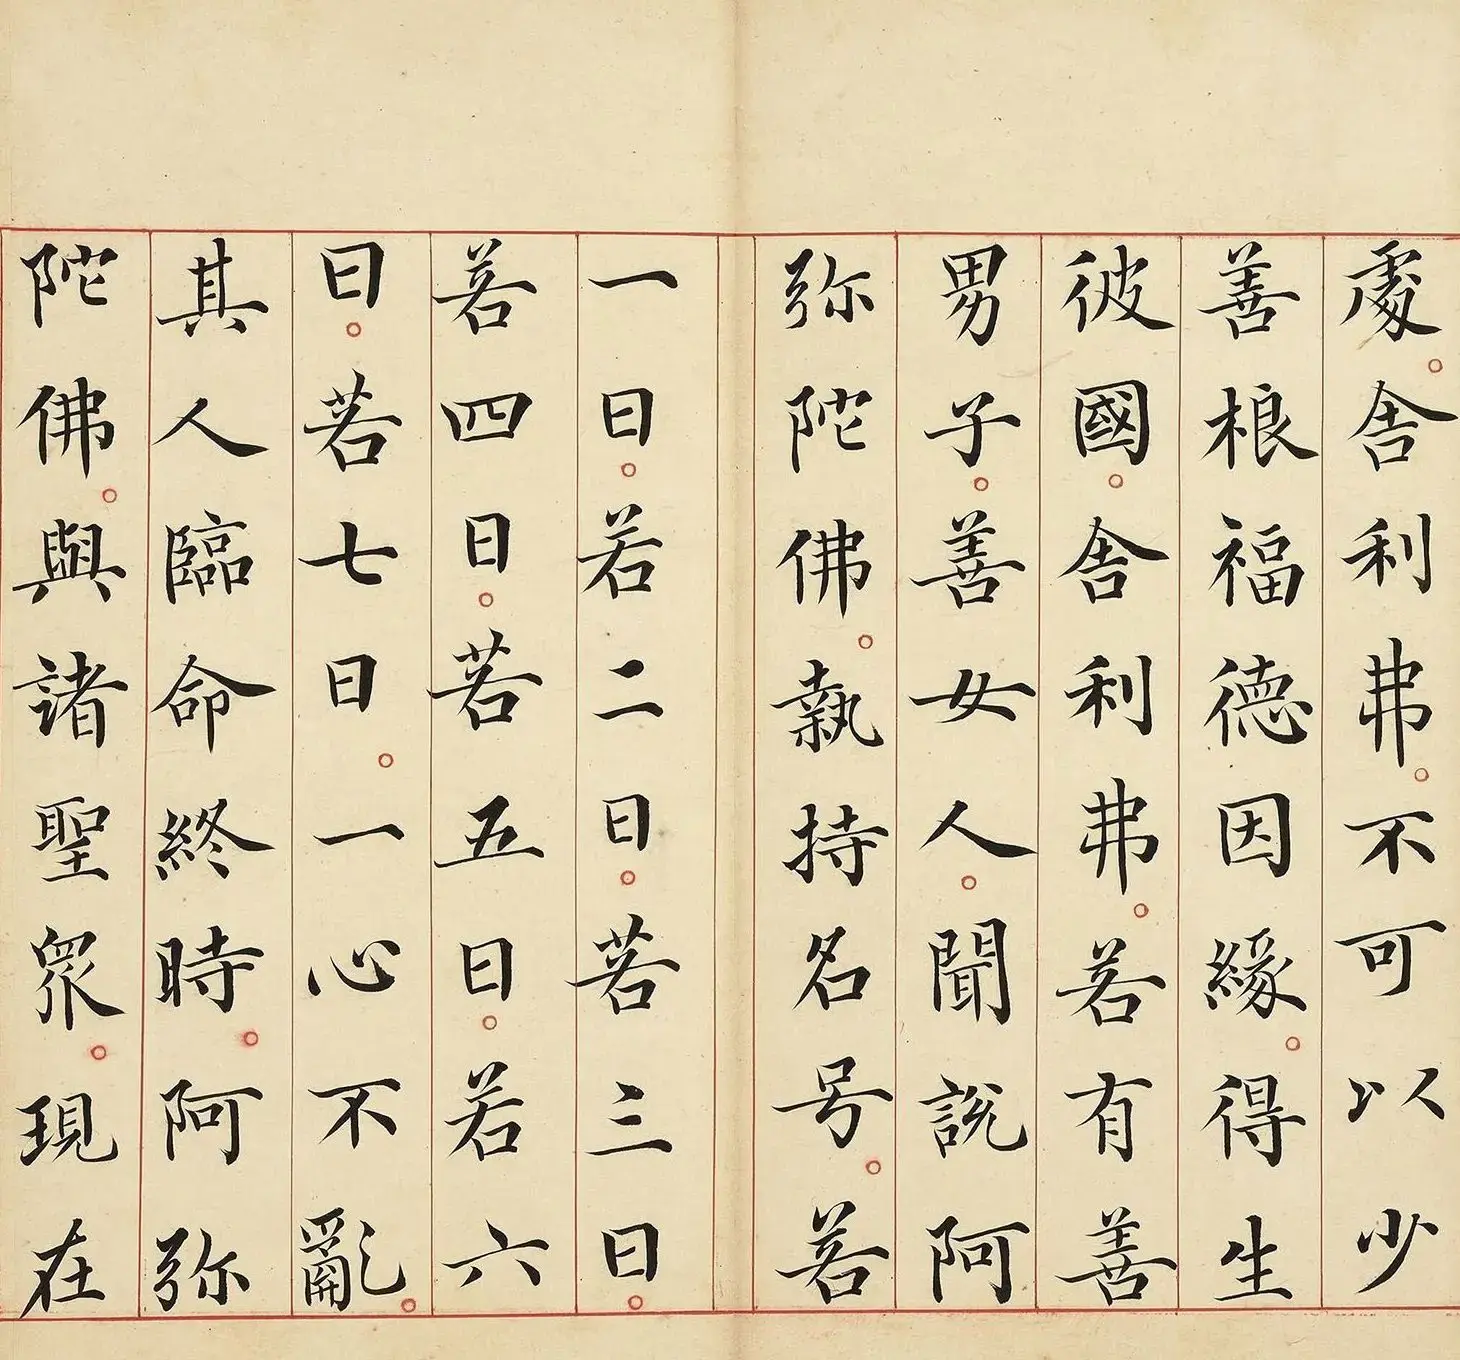 處。舍利弗。不可以少
善根福德因緣。得生
彼國。舍利弗。若有善
男子。善女人。聞說阿
弥陀佛。執持名号。若
一日。若二日。若三日。
若四日。若五日。若六
日。若七日。一心不亂。
其人臨命終時。阿弥
陀佛。與諸聖眾。現在